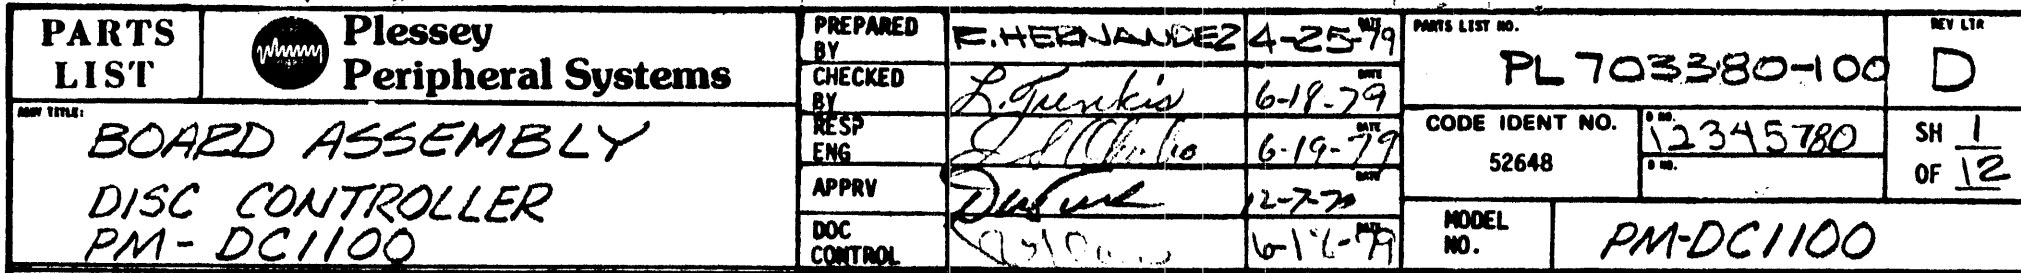 PARTS
LIST
Plessey
Peripheral Systems
ASSY TITLE:
BOARD ASSEMBLY
DISC CONTROLLER
PM-DC1100
PREPARED
BY
E. HERNANDEZ
DATE
4-25-79
CHECKED
BY
DATE
6-18-79
RESP
ENG
DATE
6-19-79
APPRV
DATE
DOC
CONTROL
DATE
PARTS LIST NO.
PL 703380-100
REV LTR
D
CODE IDENT NO.
52648
D NO.
12345780
D NO.
SH 1
OF 12
MODEL
NO.
PM-DC1100